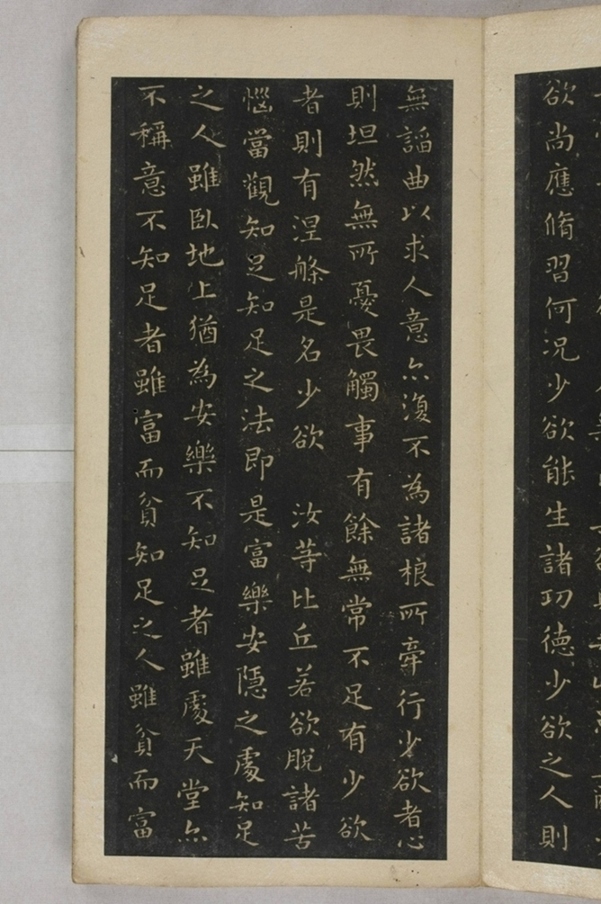 欲尚應脩習何況少欲能生諸功德少欲之人則
無謟曲以求人意亦復不為諸根所牽行少欲者心
則坦然無所憂畏觸事有餘無常不足有少欲
者則有涅槃是名少欲　汝等比丘若欲脫諸苦
惱當觀知足知足之法即是富樂安隱之處知足
之人雖臥地上猶為安樂不知足者雖處天堂亦
不稱意不知足者雖富而貧知足之人雖貧而富